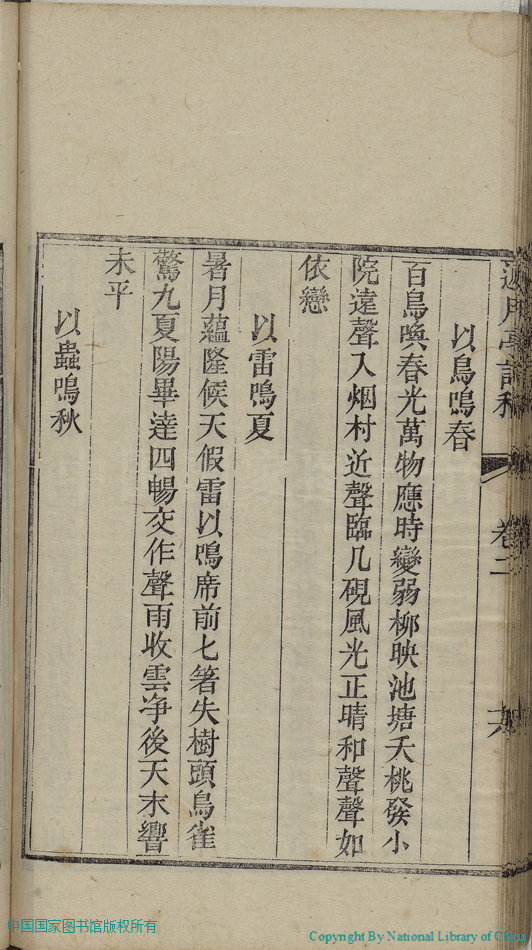 卷二
以鳥鳴春
百鳥喚春光萬物應時變弱柳映池塘夭桃發小
院遠聲入烟村近聲臨几硯風光正晴和聲聲如
依戀
以雷鳴夏
暑月蘊隆候天假雷以鳴席前匕箸失樹頭鳥雀
驚九夏陽畢達四暢交作聲雨收雲净後天末響
未平
以蟲鳴秋
中国国家图书馆版权所有
Copyright By National Library of China